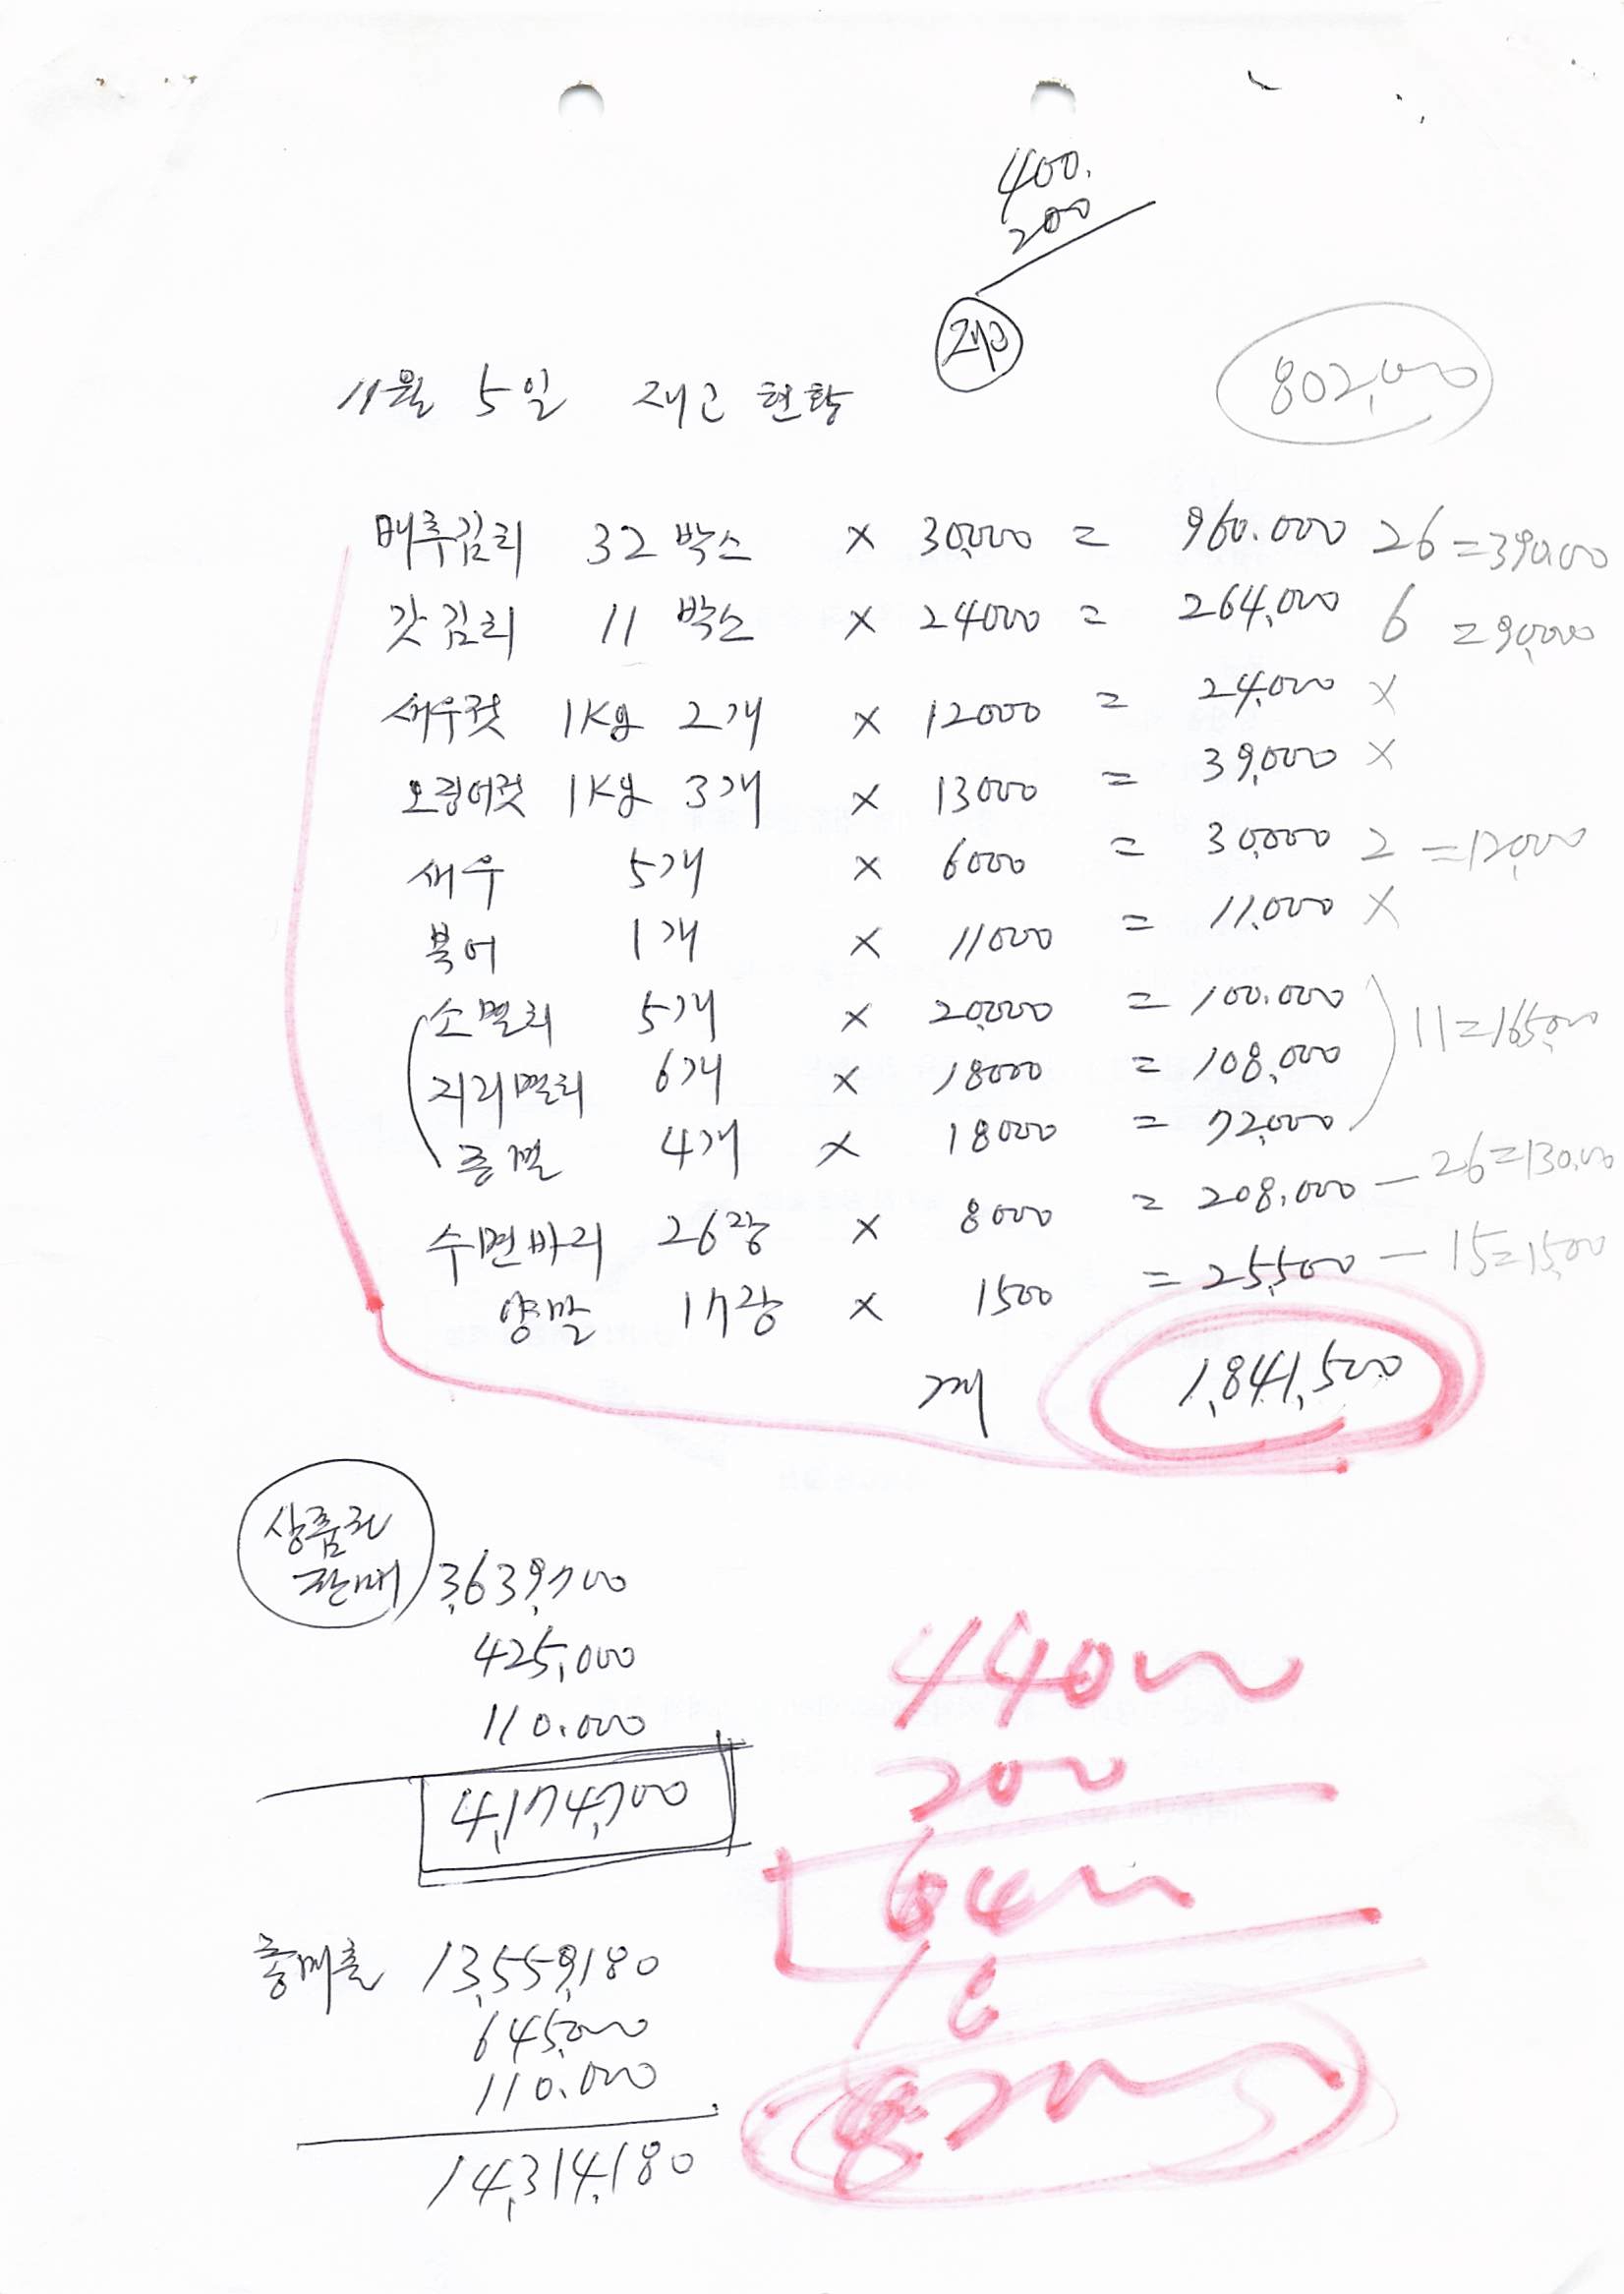 400.
200
802,000
11월 5일 재고 현황
배추김치 32 박스 × 30,000 = 960.000 26 = 390,000
갓김치 11 박스 × 24000 = 264,000 6 = 90,000
새우젓 1Kg 2개 × 12000 = 24,000 ×
오징어젓 1Kg 3개 × 13000 = 39,000 ×
새우 5개 × 6000 = 30,000 2 = 12,000
북어 1개 × 11000 = 11.000 ×
소멸치 5개 × 20,000 = 100.000
지리멸치 6개 × 18000 = 108,000 11 = 165,000
중멸 4개 × 18000 = 72,000
수면바지 26장 × 8000 = 208,000 - 26 = 130,000
양말 17장 × 1500 = 25,500 - 15 = 15,00
계 1,841,500
상품권
판매 3,639,700
425,000
110.000
4,174,700
총매출 13,559,180
645,000
110.000
14,314,180
440
200
64
18